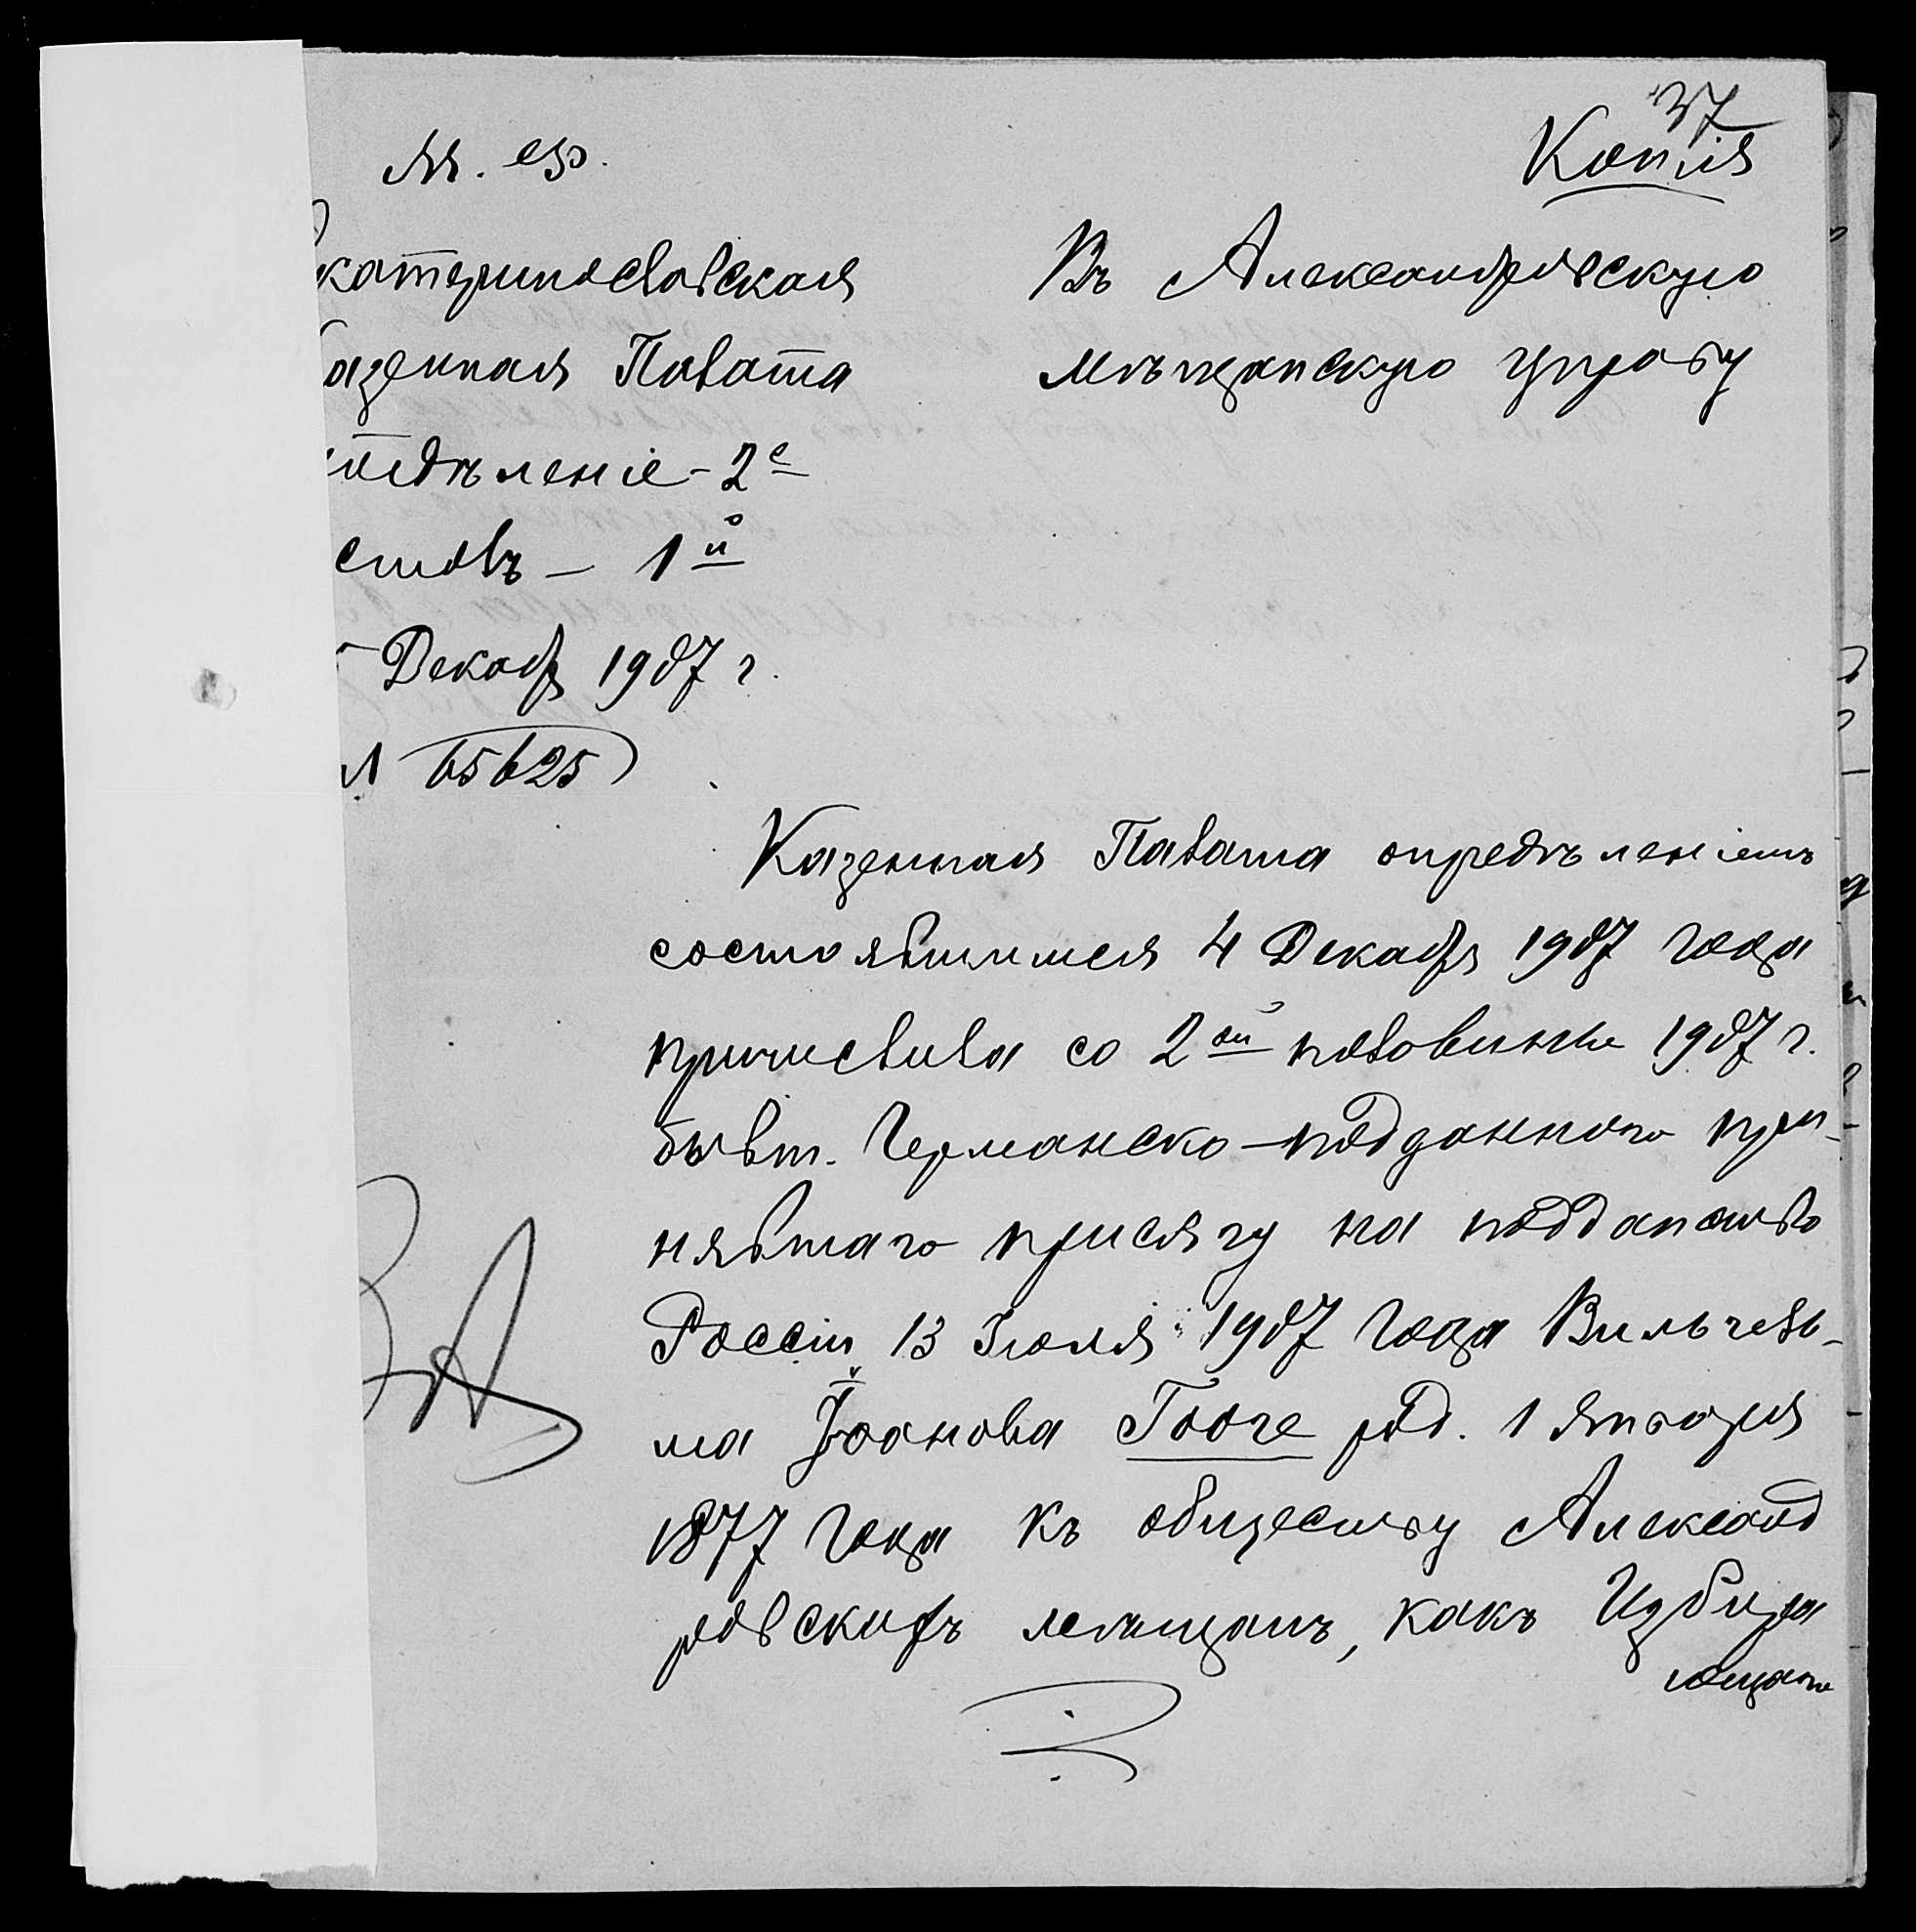 37
Копія
М. Ф.
катеринославская
азенная Палата
тдѣленіе – 2е
столъ – 1й
Декабр 1907 г.
№ 65625
Въ Александровскую
мѣщанскую управу
Казенная Палата опредѣленіемъ
состоявшимся 4 Декабря 1907 года
причислила со 2ой половины 1907 г.
бывш. Германско-подданного при-
нявшаго присягу на подданство
Россіи 13 Іюля 1907 года Вильгель-
ма Іоанова Гооге род. 1 Января
1877 года къ обществу Александ
ровскихъ мѣщанъ, какъ Избира
ющаго